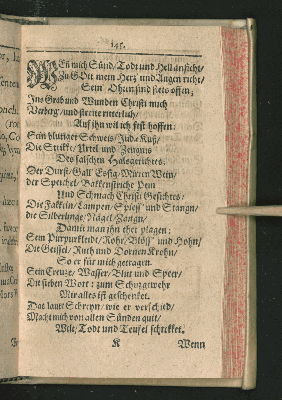 145.
WEñ mich Sünd/ Todt und Hell ansicht/
Zu GOtt mein Hertz und Augen richt/
Sein Ohren sind stets offen;
Ins Grab und Wunden Christi mich
Verberg/ und streite ritterlich/
Auf ihn wil ich fest hoffen:
Sein blutiger Schweis/ Judæ Kuß/
Die Strikke/ Urtel und Zeugnis
Des falschen Halsgerichtes:
Der Durst/ Gall/ Essig/ Mirren Wein/
der Speichel/ Bakkenstreiche Pein
Und Schmach Christi Gesichtes:
Die Fakkeln/ Lampen/ Spieß und Stangn/
die Silberlinge/ Nägel/ Zangn/
Damit man ihn thet plagen;
Sein Purpurkleidt/ Rohr/ Blöß' und Hohn/
Die Geissel/ Ruth und Dornen Krohn/
So er für mich getragen.
Sein Creutze/ Wasser/ Blut und Speer/
Die sieben Wort: zum Schutzgewehr
Mir alles ist geschenket.
Das laute Schreyn/ wie er verschied/
Macht mich von allen Sünden quit/
Welt/ Todt und Teufel schrekket.
K Wenn